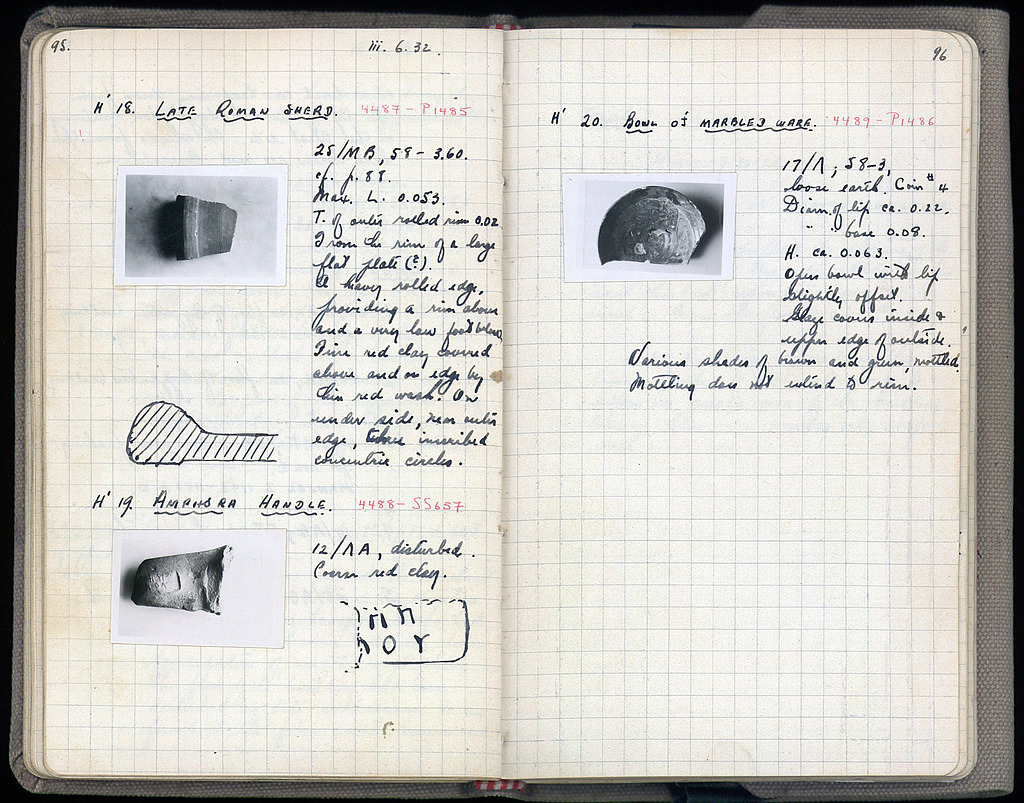 95.
iii. 6. 32.
H' 18. LATE ROMAN SHERD. 4487 – P1485
25/MB, 58 – 3.60.
cf. p. 88.
Max. L. 0.053.
T. of outer rolled rim 0.02
From the rim of a large
flat plate (?).
A heavy rolled edge,
providing a rim above
and a very low foot below.
Fine red clay covered
above and on edge by
thin red wash. On
under side, near outer
edge, three inscribed
concentric circles.
H' 19. AMPHORA HANDLE. 4488 – SS657
12/ΛA, disturbed.
Coarse red clay.
ΟΥ
96
H' 20. BOWL of MARBLED WARE. 4489 – P1486
17/Λ; 58-3,
loose earth. Coin # 4
Diam. of lip ca. 0.22.
" base 0.08.
H. ca. 0.063.
Open bowl with lip
slightly offset.
Glaze covers inside &
upper edge of outside.
Various shades of brown and green, mottled.
Mottling does not extend to rim.